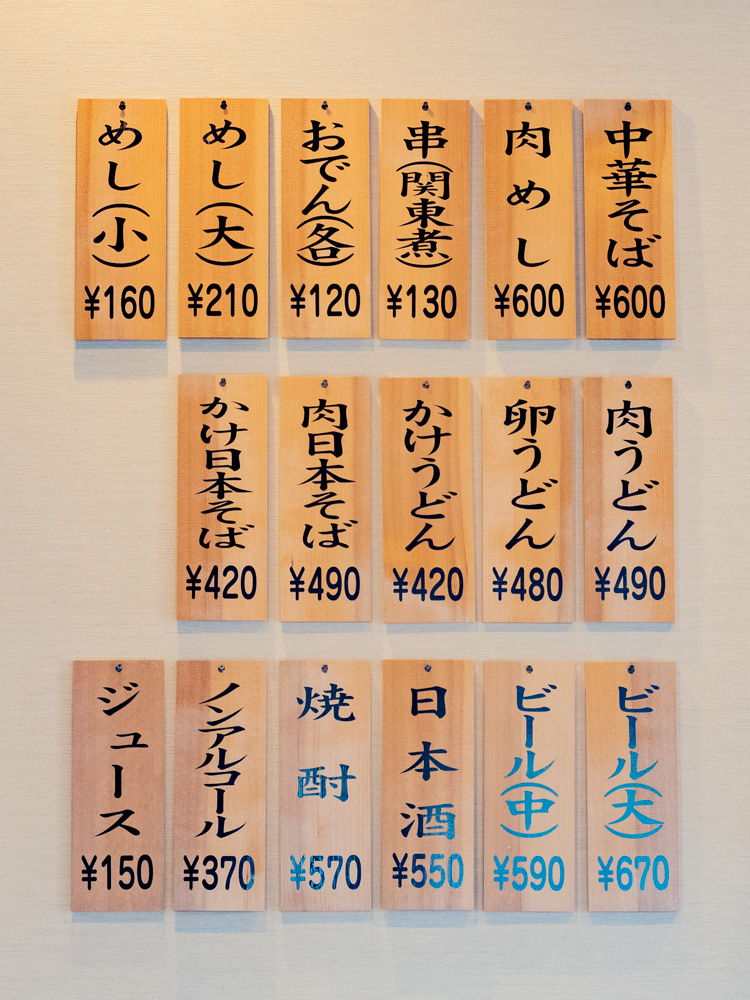 中華そば
¥600
肉めし
¥600
串(関東煮)
¥130
おでん(各)
¥120
めし(大)
¥210
めし(小)
¥160
肉うどん
¥490
卵うどん
¥480
かけうどん
¥420
肉日本そば
¥490
かけ日本そば
¥420
ビール(大)
¥670
ビール(中)
¥590
日本酒
¥550
焼酎
¥570
ノンアルコール
¥370
ジュース
¥150